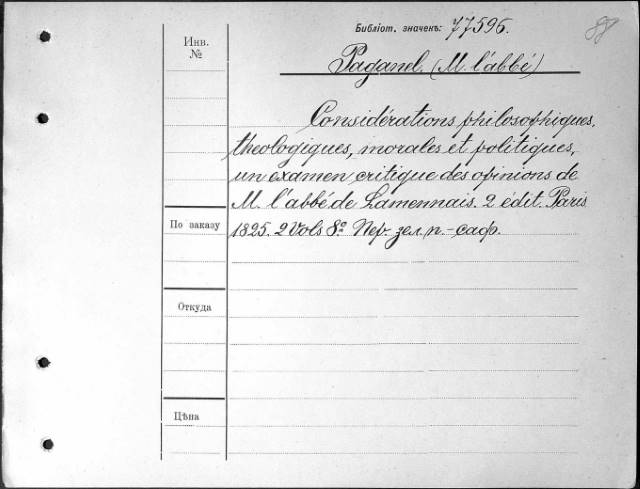 Библіот. значекъ: 77596.
88
Инв.
№
Paganel. (M. l'abbé)
Considérations philosophiques,
theologiques, morales et politiques,
un examen critique des opinions de
M. l'abbé de Lamennais. 2 édit. Paris
По заказу
1825. 2 Vols 8º Пер. зел. п.-саф.
Откуда
Цѣна